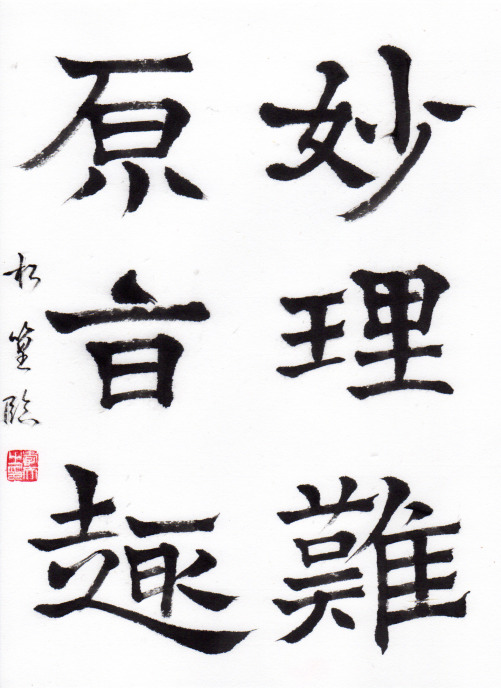 妙理難
原旨趣
松篁臨